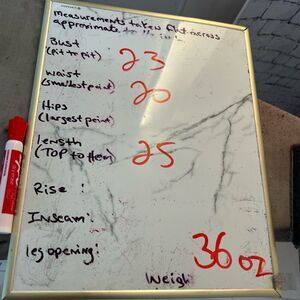 measurements taken flat across
approximate to the inch
Bust
(pit to pit) 23
waist
(smallest point) 20
Hips
(largest point)
length
(TOP to Hem) 25
Rise :
Inseam:
leg opening:
36 oz
Weigh